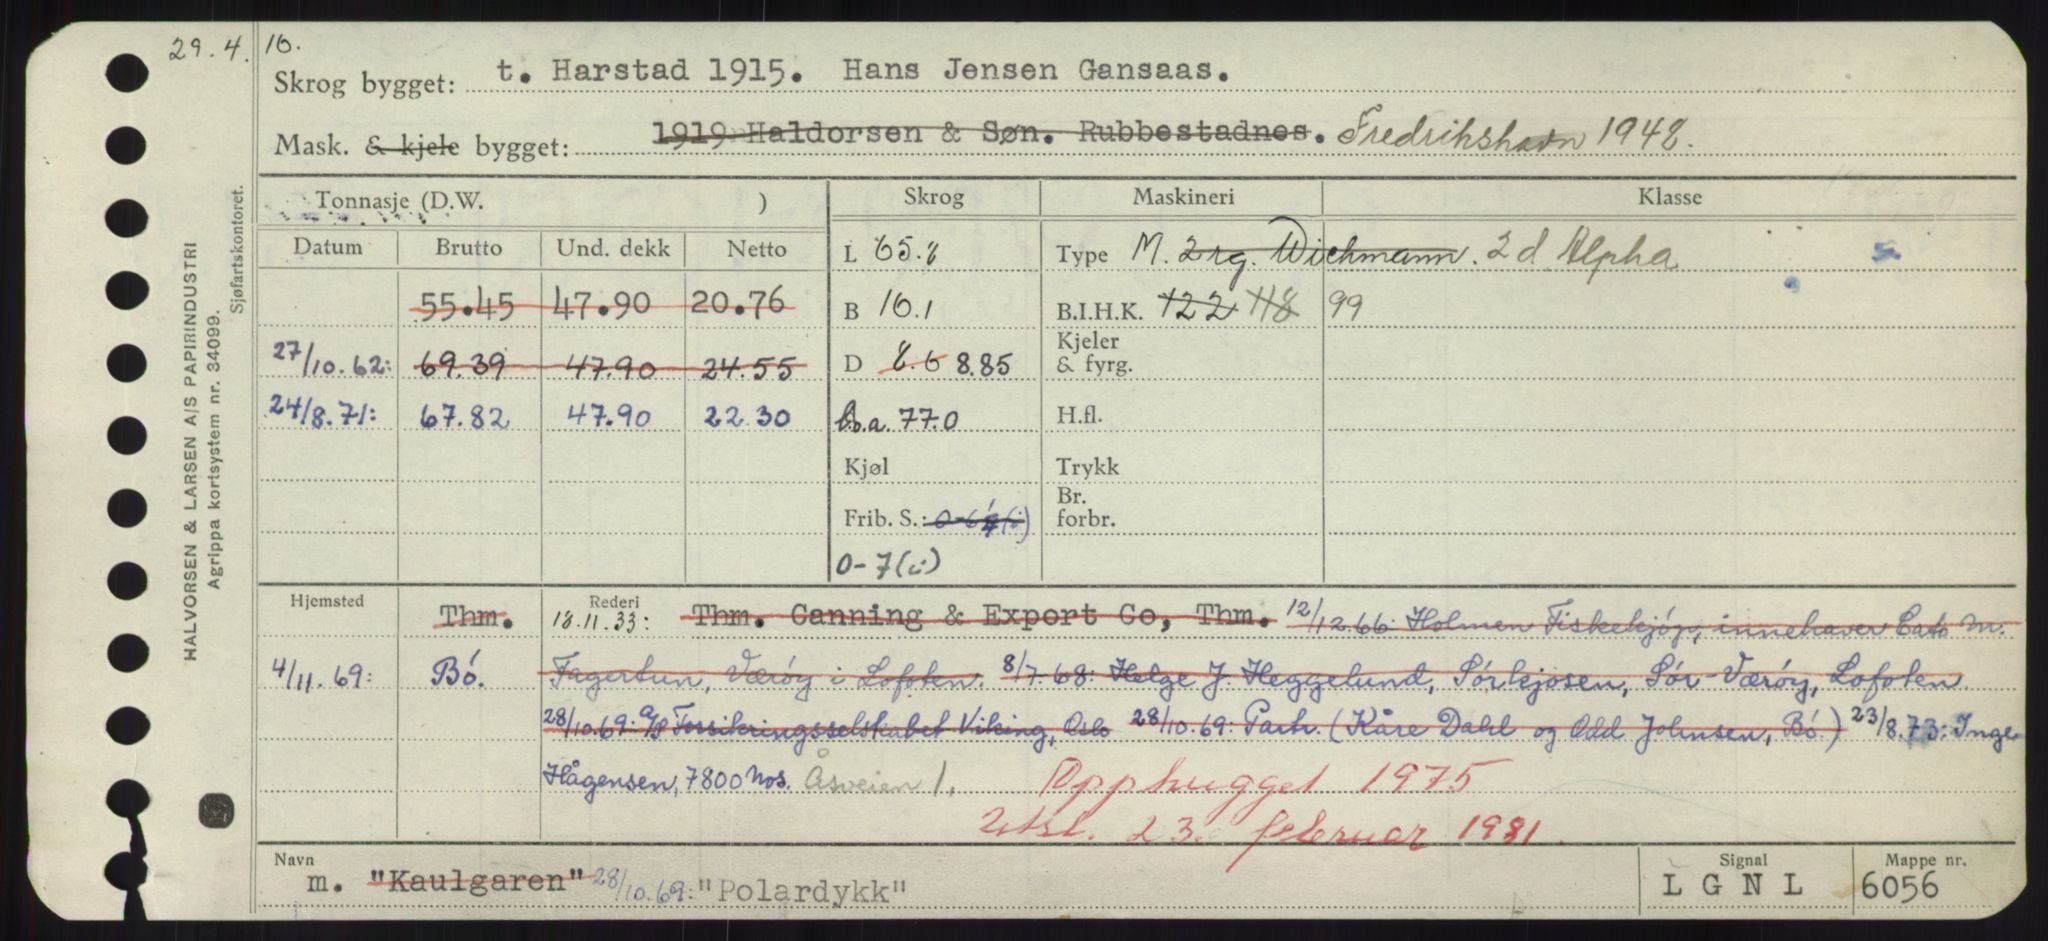 29.4.16.
Skrog bygget: t. Harstad 1915. Hans Jensen Gansaas.
Mask. & kjele bygget: 1919 Haldorsen & Søn. Rubbestadnes. Fredrikshavn 1948.
HALVORSEN & LARSEN A/S PAPIRINDUSTRI
Agrippa kortsystem nr. 34099.
Sjøfartskontoret.
Tonnasje (D.W. ) Skrog Maskineri Klasse
Datum Brutto Und. dekk Netto L 65.8 Type M. 2 rg. Wichmann. 2 d Alpha
55.45 47.90 20.76 B 16.1 B.I.H.K. 122 118 99
27/10.62: 69.39 47.90 24.55 D 8.6 8.85 Kjeler & fyrg.
24/8.71: 67.82 47.90 22.30 L.o.a. 77.0 H.fl.
Kjøl Trykk
Frib. S.: Br. forbr.
0-7(i)
Hjemsted Thm. Rederi 18.11.33: Thm. Canning & Export Co, Thm. 12/12.66: Holmen Fiskekjøp, innehaver Cato M.
4/11.69: Bö. Fagertun, Værøy i Lofoten. 8/7.68: Helge J. Heggelund, Sørkjosen, Sør-Værøy, Lofoten.
28/10.69: A/S Forsikringsselskabet Viking, Oslo 28/10.69: Partr. (Kåre Dahl og Odd Johnsen, Bö) 23/8.73: Inge
Hågensen, 7800 Nos. Åsveien 1. Opphugget 1975
Utsl. 23. februar 1981.
Navn m. "Kaulgaren" 28/10.69: "Polardykk" Signal L G N L Mappe nr. 6056